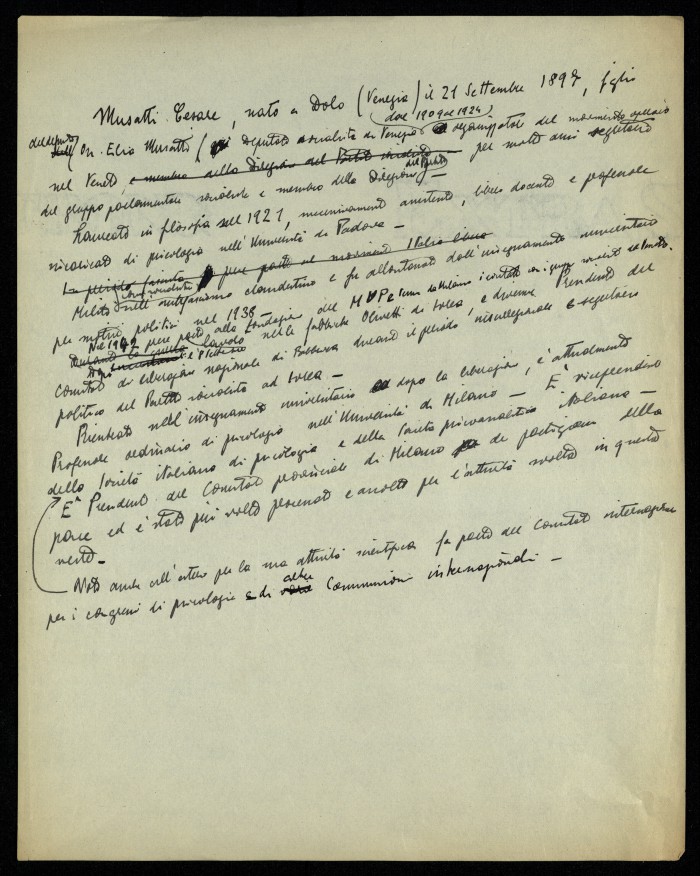 Musatti Cesare, nato a Dolo (Venezia) il 21 Settembre 1897, figlio
dal 1909 al 1924)
del deputato On. Elia Musatti (già Deputato socialista di Venezia e organizzatore del movimento operaio
nel Veneto, e membro della Direzione del Partito per molti anni segretario
del gruppo parlamentare socialista e membro della Direzione del Partito) —
Laureato in filosofia nel 1921, successivamente assistente, libero docente e professore
incaricato di psicologia nell'Università di Padova —
La prese parte al movimento Italia libera
Militò nell'antifascismo clandestino e fu allontanato dall'insegnamento universitario
per motivi politici nel 1938 —
Nel 1942 prese parte alla fondazione del MUP e tenne da Milano i contatti con i gruppi socialisti del Veneto.
Durante la guerra lavorò nelle fabbriche Olivetti di Ivrea, e divenne Presidente del
Comitato di liberazione nazionale di fabbrica durante il periodo insurrezionale e segretario
politico del Partito socialista ad Ivrea —
Rientrato nell'insegnamento universitario dopo la liberazione, è attualmente
Professore ordinario di psicologia nell'Università di Milano — È vicepresidente
della Società italiana di psicologia e della Società psicoanalitica italiana —
È Presidente del Comitato provinciale di Milano dei partigiani della
pace ed è stato più volte processato e assolto per l'attività svolta in questa
veste —
Noto anche all'estero per la sua attività scientifica fa parte del Comitato internazionale
per i congressi di psicologia e di altre Commissioni internazionali —